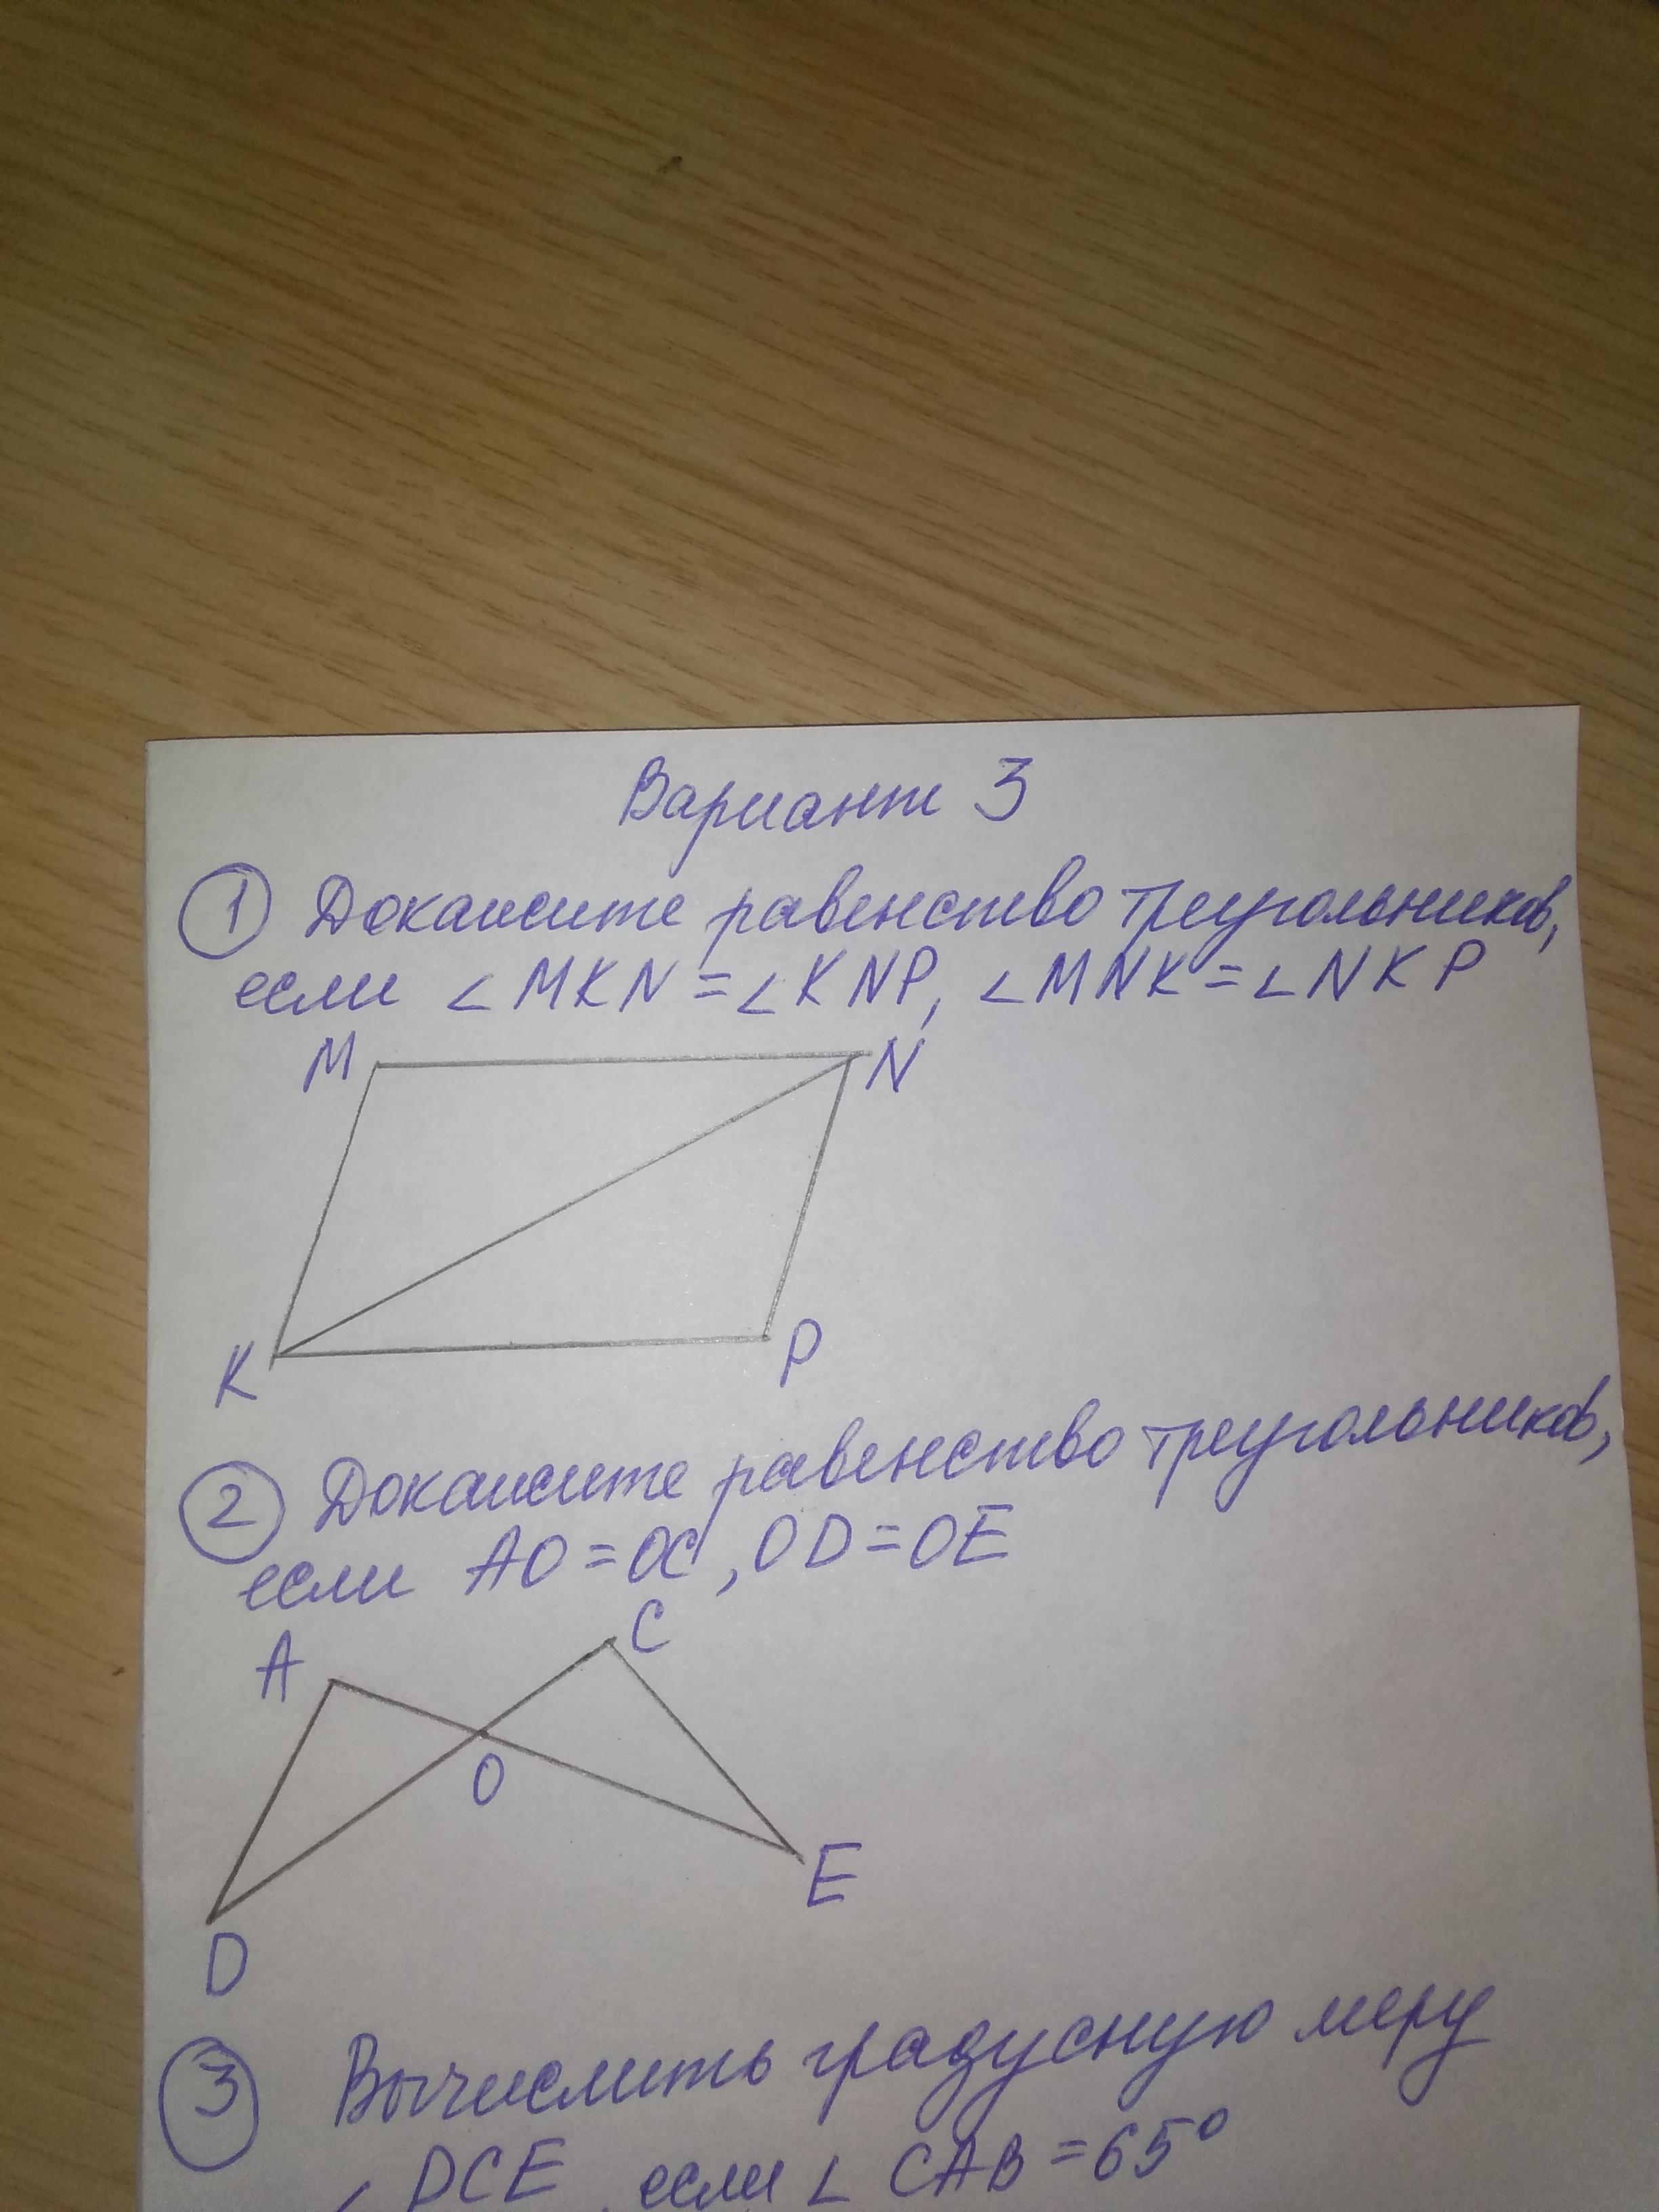 Вариант 3
1 Докажите равенство треугольников,
если ∠MKN=∠KNP, ∠MNK=∠NKP
M
N
K
P
2 Докажите равенство треугольников,
если AO=OC, OD=OE
C
A
O
E
D
3 Вычислить градусную меру
∠DCE, если ∠CAB=65°